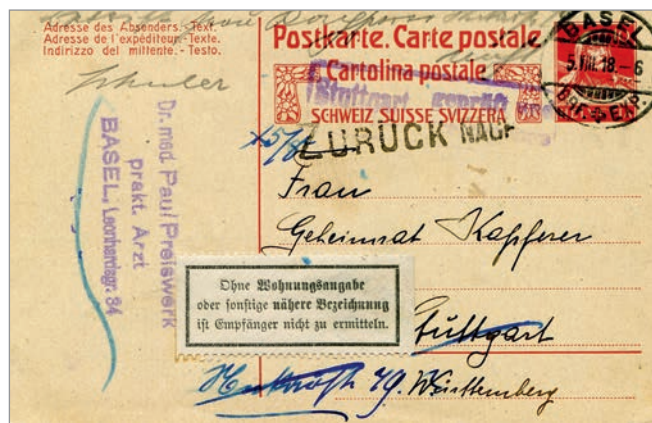 Adresse des Absenders.-Text.
Adresse de l'expéditeur.-Texte.
Indirizzo del mittente.-Testo.
Postkarte. Carte postale.
Cartolina postale
SCHWEIZ SUISSE SVIZZERA
BASEL
5.VIII.18.-6
BRF.EXP.
Stuttgart geprüft
ZURÜCK NACH
Dr. med. Paul Preiswerk
prakt. Arzt
BASEL, Leonhardsgr. 34
Frau
Geheimrat Kapferer
Ohne Wohnungsangabe
oder sonstige nähere Bezeichnung
ist Empfänger nicht zu ermitteln.
Stuttgart
Württemberg